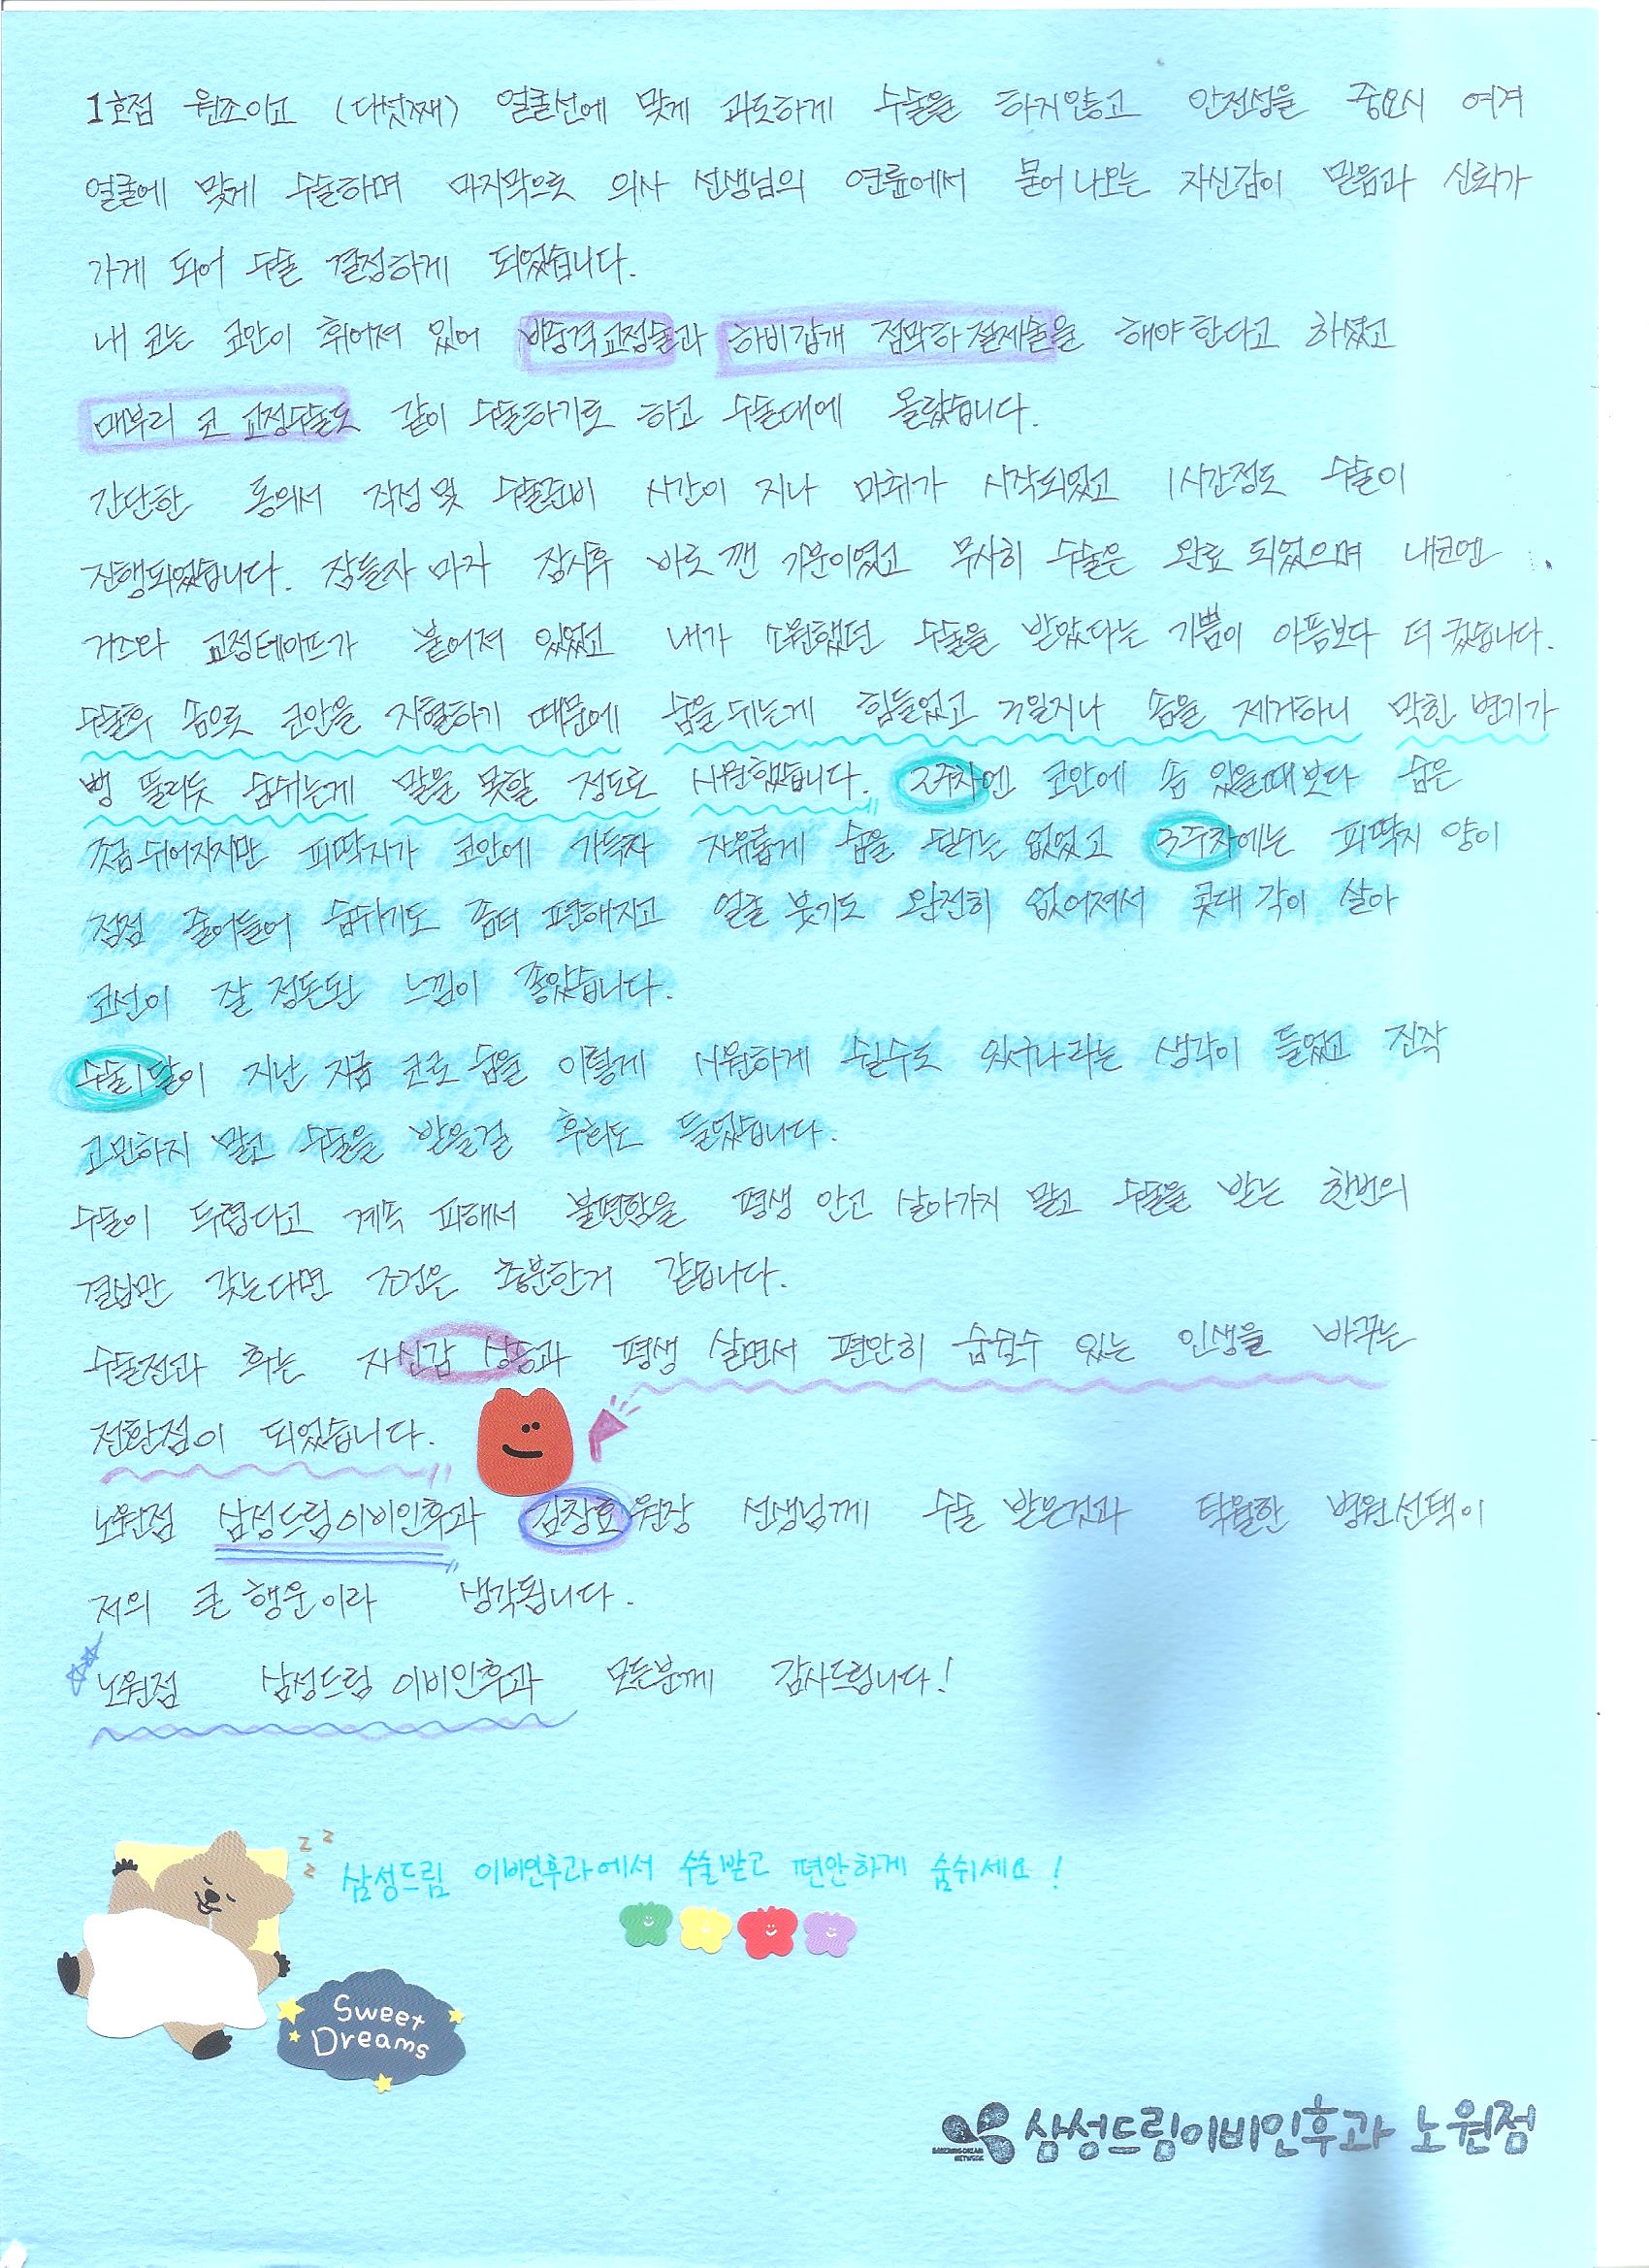 1호점 원조이고 (다섯째) 얼굴선에 맞게 과도하게 수술을 하지않고 안전성을 중요시 여겨
얼굴에 맞게 수술하며 마지막으로 의사 선생님의 연륜에서 묻어나오는 자신감이 믿음과 신뢰가
가게 되어 수술 결정하게 되었습니다.
내 코는 코안이 휘어져 있어 비중격교정술과 하비갑개 점막하 절제술을 해야한다고 하셨고
매부리 코 교정수술도 같이 수술하기로 하고 수술대에 올랐습니다.
간단한 동의서 작성 및 수술준비 시간이 지나 마취가 시작되었고 1시간정도 수술이
진행되었습니다. 잠들자 마자 잠시후 바로 깬 기분이였고 무사히 수술은 완료 되었으며 내코엔
거즈와 교정테이프가 붙어져 있었고 내가 소원했던 수술을 받았다는 기쁨이 아픔보다 더 컸습니다.
수술후 솜으로 코안을 지혈하기 때문에 숨을 쉬는게 힘들었고 7일지나 솜을 제거하니 막힌 변기가
뻥 뚫리듯 숨쉬는게 말을 못할 정도로 시원했습니다. 2주차엔 코안에 솜 있을때보다 숨은
조금 쉬어지지만 피딱지가 코안에 가득차 자유롭게 숨을 쉴수는 없었고 3주차에는 피딱지 양이
점점 줄어들어 숨쉬기도 좀더 편해지고 얼굴 붓기도 완전히 없어져서 콧대 각이 살아
코선이 잘 정돈된 느낌이 좋았습니다.
수술1달이 지난 지금 코로 숨을 이렇게 시원하게 쉴수도 있구나라는 생각이 들었고 진작
고민하지 말고 수술을 받을걸 후회도 들었습니다.
수술이 두렵다고 계속 피해서 불편함을 평생 안고 살아가지 말고 수술을 받는 한번의
결심만 갖는다면 조건은 충분한거 같습니다.
수술전과 후는 자신감 상승과 평생 살면서 편안히 숨쉴수 있는 인생을 바꾸는
전환점이 되었습니다.
노원점 삼성드림이비인후과 김창효원장 선생님께 수술 받은것과 탁월한 병원선택이
저의 큰 행운이라 생각됩니다.
노원점 삼성드림 이비인후과 모든분께 감사드립니다!
z z z
삼성드림 이비인후과에서 수술받고 편안하게 숨쉬세요!
Sweet
Dreams
삼성드림이비인후과 노원점